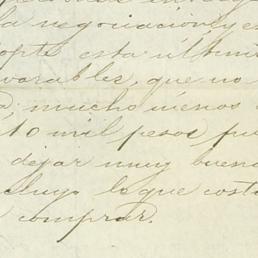 la negociacion, y es
opte esta última
vorables, que no
mucho menos
10 mil pesos pue
dejar muy buena
cluyo lo que costa
comprar.